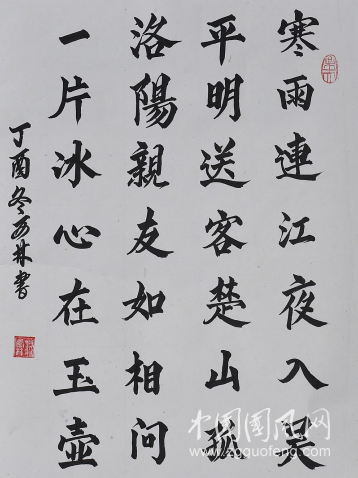 寒雨連江夜入吴
平明送客楚山孤
洛陽親友如相問
一片冰心在玉壺
丁酉冬 林書
中国國风网
www.zgguofeng.com